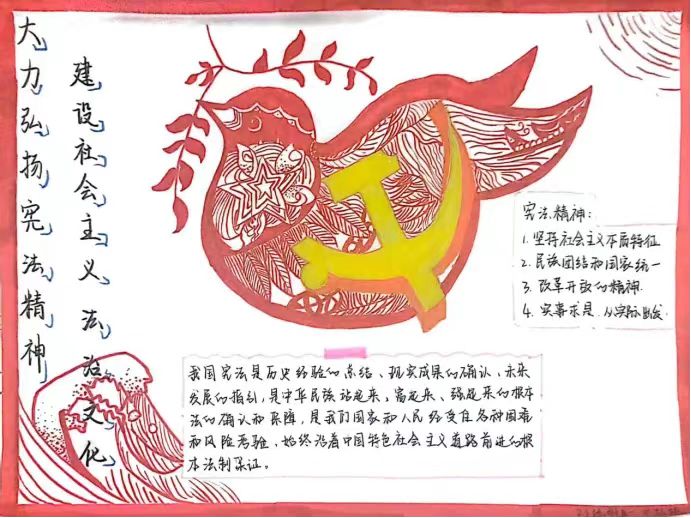 大力弘扬宪法精神
建设社会主义法治文化
宪法精神:
1. 坚持社会主义本质特征
2. 民族团结和国家统一
3. 改革开放的精神
4. 实事求是 从实际出发
我国宪法是历史经验的总结、现实成果的确认、未来
发展的指引,是中华民族站起来、富起来、强起来的根本
法的确认和保障,是我们国家和人民经受住各种困难
和风险考验、始终沿着中国特色社会主义道路前进的根
本法制保证。